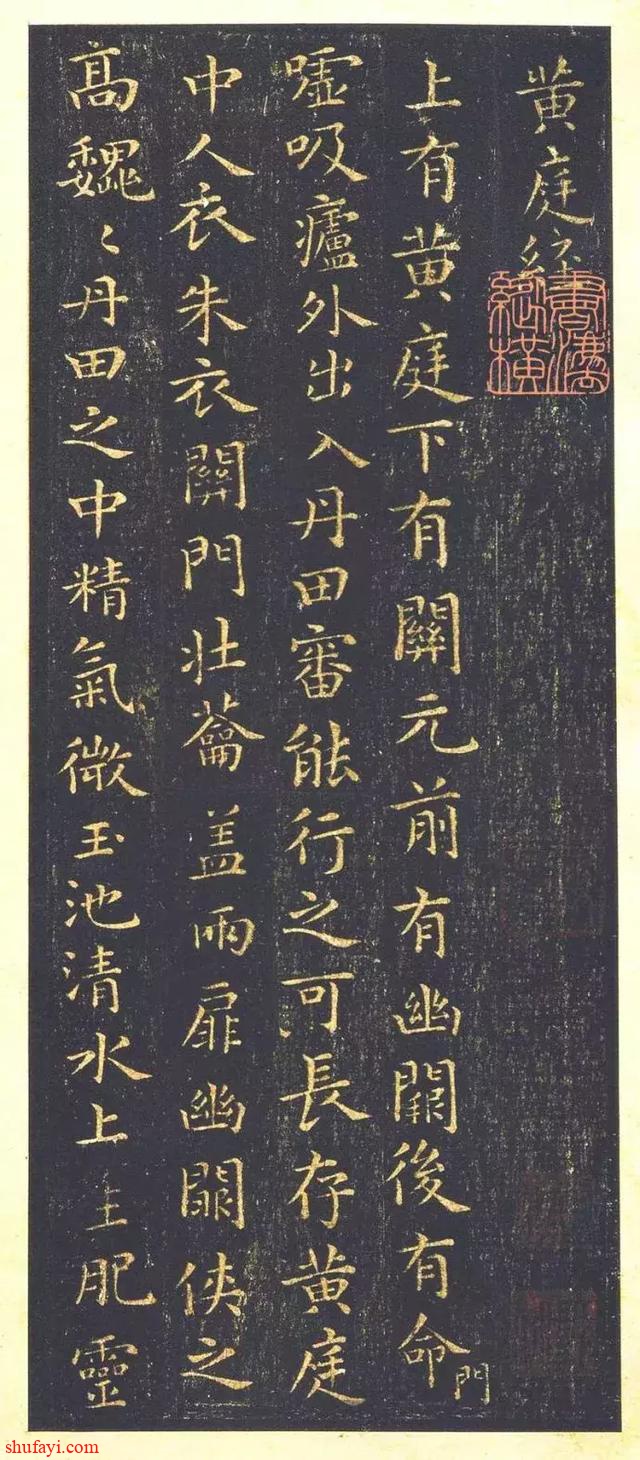 黄庭經
上有黄庭下有關元前有幽闕後有命門
嘘吸廬外出入丹田審能行之可長存黄庭
中人衣朱衣關門壯蘥盖兩扉幽闕俠之
高巍〻丹田之中精氣微玉池清水上生肥靈
shufayi.com